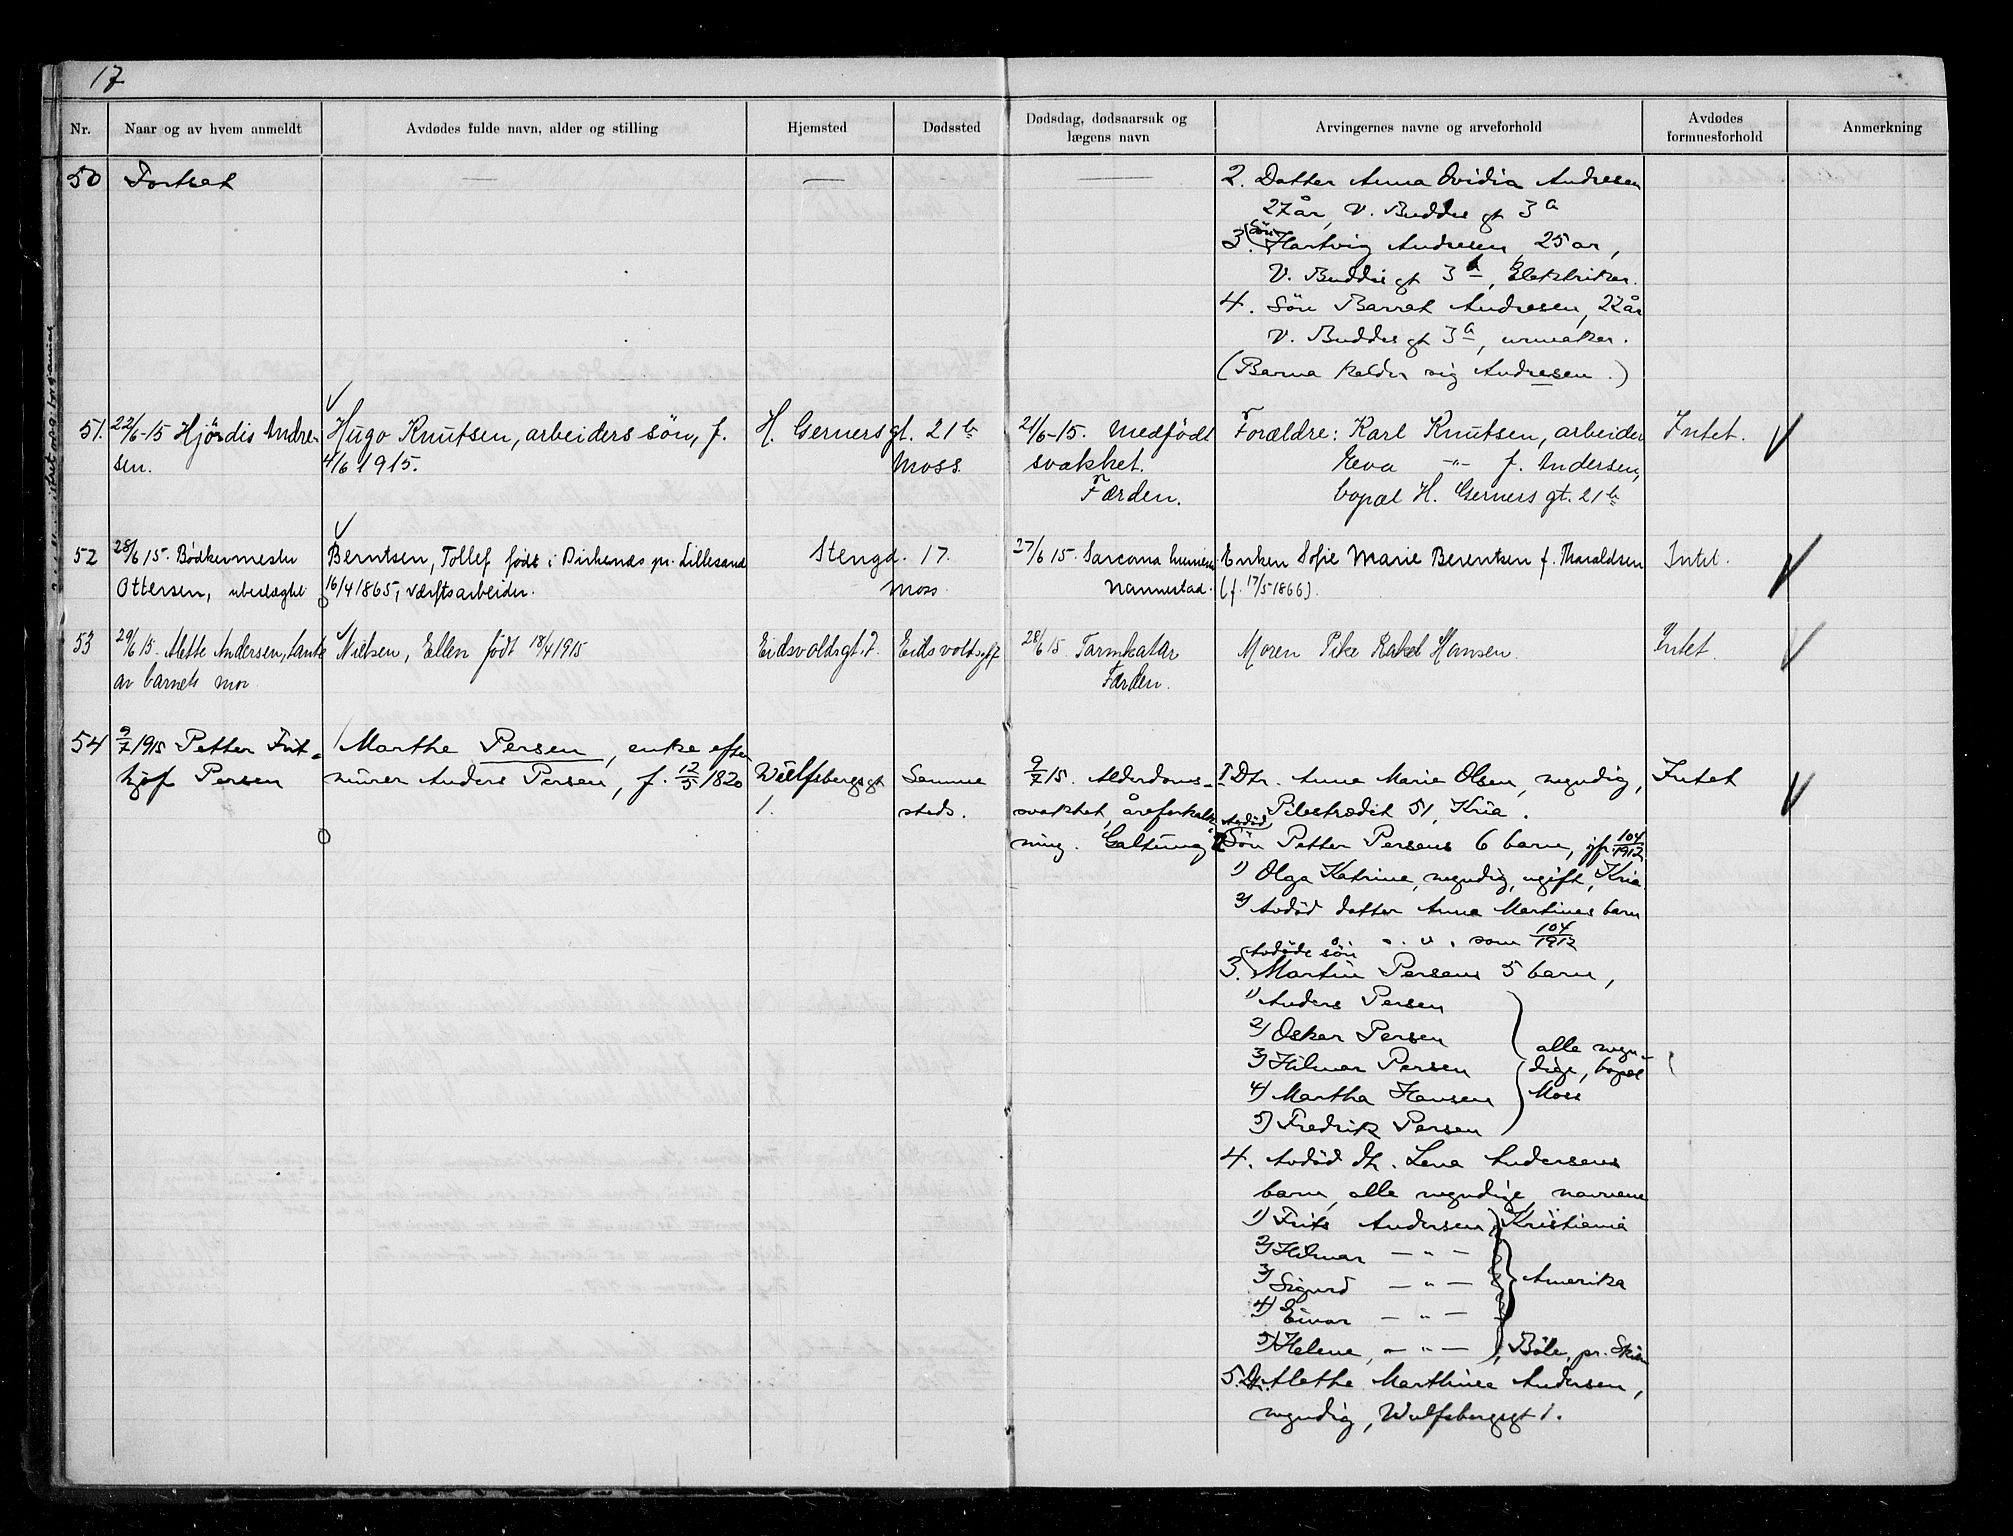 17
Nr.
Naar og av hvem anmeldt
Avdødes fulde navn, alder og stilling
Hjemsted
Dødssted
Dødsdag, dødsaarsak og
lægens navn
Arvingernes navne og arveforhold
Avdødes
formuesforhold
Anmerkning
50 Fortsat — — —
2. Datter Anna Ovidia Andresen
27 år, V. Buddes gt 3a
3. Søn Hartvig Andresen 25 år,
V. Buddes gt 3a, Elektriker.
4. Søn Barret Andresen, 22 år
V. Buddes gt 3a, urmaker.
(Barna kalder sig Andresen.)
51. 22/6-15 Hjördis Andre-
sen.
Hugo Knutsen, arbeiders sön, f.
4/6 1915.
H. Gerners gt. 21b
Moss.
21/6-15. Medfödt
svakhet.
Færden.
Forældre: Karl Knutsen, arbeider
Eeva -"- f. Andersen,
bopæl H. Gerners gt. 21b
Intet.
52 28/6 15. Bødkermester
Ottersen, ubeslægtet
Berntsen, Tollef født i Birkenes pr. Lillesand
16/4 1865, værftsarbeider.
Stengd. 17.
Moss.
27/6 15. Sarcoma
Nannestad.
Enken Sofie Marie Berentsen f. Tharaldsen
(f. 17/5-1866).
Intet.
53 29/6 15. Alette Andersen, tante
av barnets mor
Nielsen, Ellen født 18/4 1915
Eidsvoldsgt. 7.
Eidsvoldsgt 7
28/6 15. Tarmkatar
Færden.
Moren Pike Rakel Hansen.
Intet.
54 9/7 1915 Petter Frit-
hjof Persen
Marthe Persen, enke efter
murer Anders Persen, f. 12/5 1820
Wulfsbergsgt
1.
Samme
steds.
9/7 15. Alderdoms-
svakhet, åreforkalk-
ning. Galtung
1 Dtr. Anna Marie Olsen, myndig,
Pilestrædet 51, Kria.
2 Avdød Søn Petter Persens 6 barn, jfr. 104/1912
1) Olga Katrine, myndig, ugift, Kria
2) Avdød datter Anna Martines barn
o. s. v. som 104/1912
3. Avdøde søn Martin Persens 5 barn,
1) Anders Persen
2) Oskar Persen
3) Hilmar Persen
4) Martha Hansen
5) Fredrik Persen
alle myn-
dige, bopæl
Moss
4. Avdød dtr. Lena Andersens
barn, alle myndige, navnene
1) Frits Andersen, Kristiania
2) Hilmar -"-
3) Sigurd -"-
4) Einar -"-
Amerika
5) Helene, -"-, Böle, pr. Skien
5. Dtr. Alethe Marthine Andersen,
myndig, Wulfsbergsgt 1.
Intet